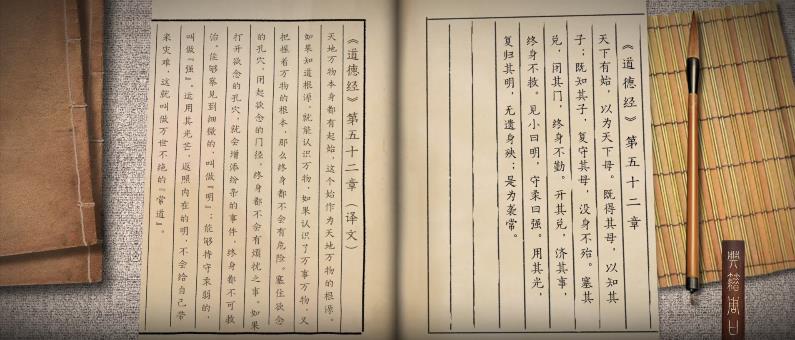 《道德经》第五十二章
天下有始，以为天下母。既得其母，以知其
子；既知其子，复守其母，没身不殆。塞其
兑，闭其门，终身不勤。开其兑，济其事，
终身不救。见小曰明，守柔曰强。用其光，
复归其明，无遗身殃；是为袭常。
《道德经》第五十二章（译文）
天地万物本身都有起始，这个始作为天地万物的根源。
如果知道根源，就能认识万物，如果认识了万事万物，又
把握着万物的根本，那么终身都不会有危险。塞住欲念
的孔穴，闭起欲念的门径，终身都不会有烦扰之事。如果
打开欲念的孔穴，就会增添纷杂的事件，终身都不可救
治。能够察见到细微的，叫做『明』；能够持守柔弱的，
叫做『强』。运用其光芒，返照内在的明，不会给自己带
来灾难，这就叫做万世不绝的『常道』。